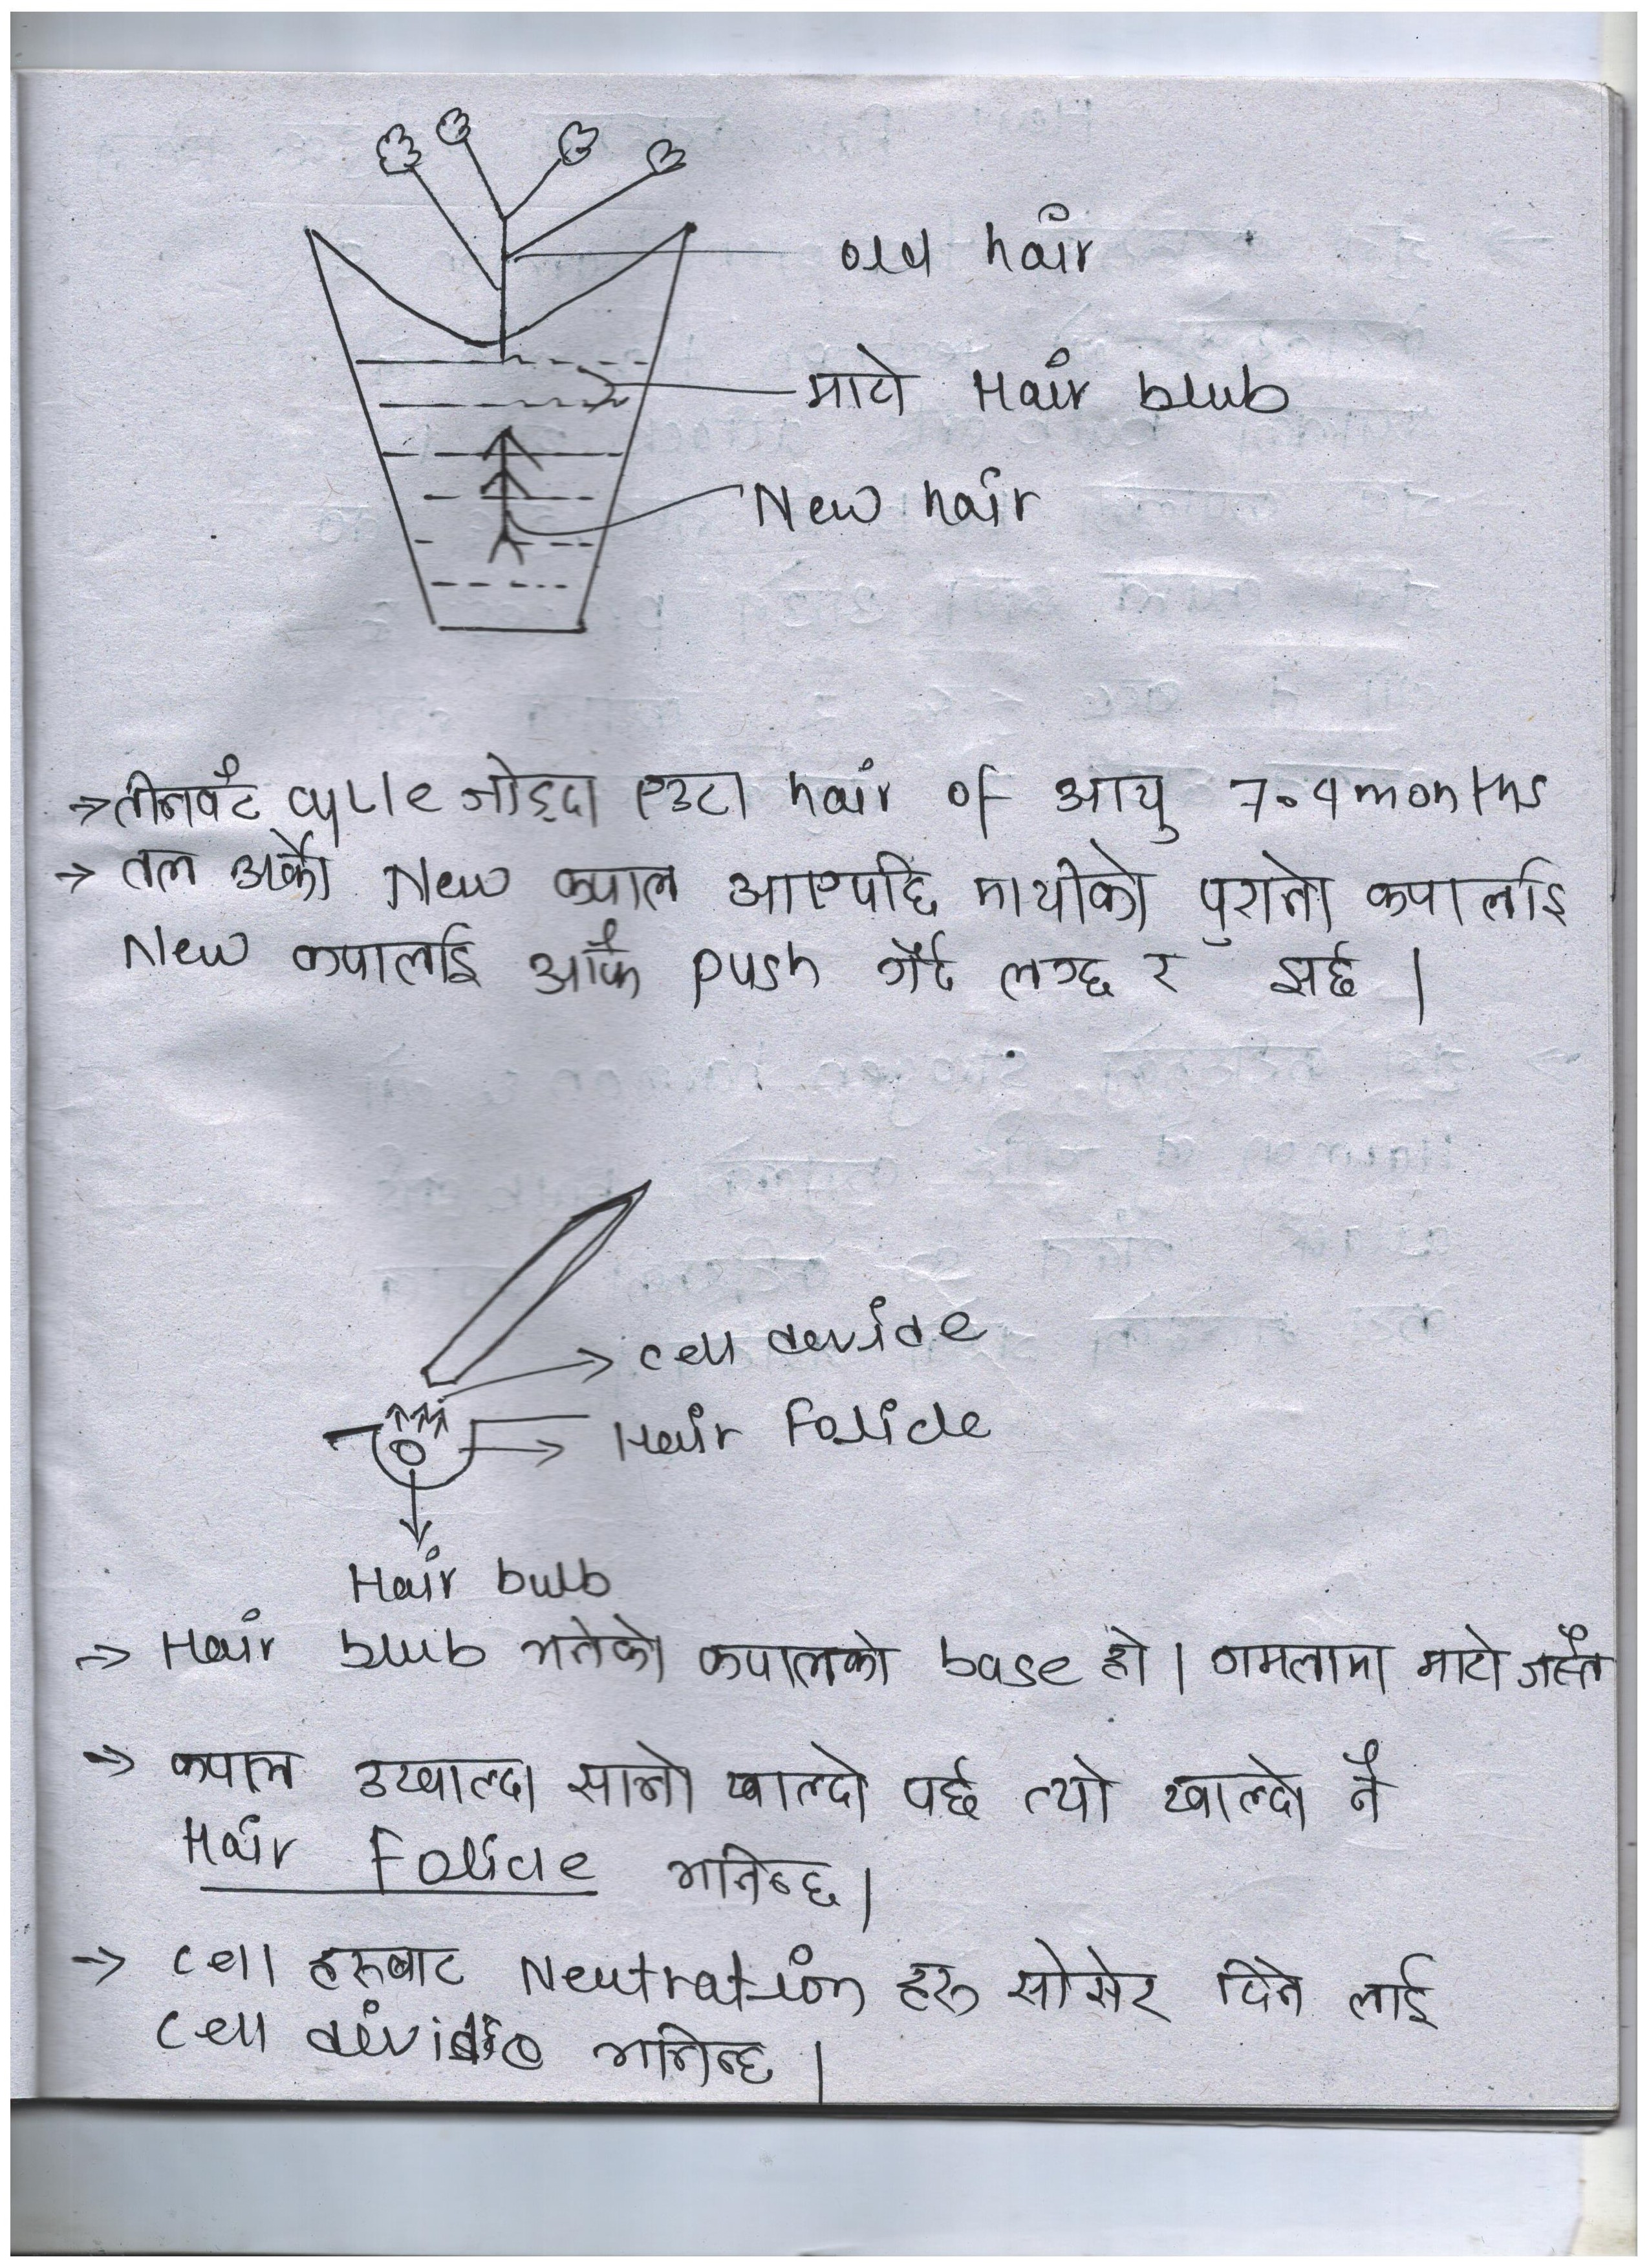 old hair
माटो Hair blub
New hair
→ तीनवटै cycle जोड्दा एउटा hair of आयु 7.9 months
→ तल अर्को New कपाल आएपछि माथीको पुरानो कपाललाई
New कपाललाई आफै push गर्दै लग्छ र झर्छ |
cell devide
Hair Folicle
Hair bulb
→ Hair blub भनेको कपालको base हो | गमलामा माटो जस्तै
→ कपाल उखाल्दा सानो खाल्डो पर्छ त्यो खाल्डो नै
Hair Folicle भनिन्छ |
→ cell हरुबाट Neutration हरु सोसेर दिने लाई
cell devide भनिन्छ |